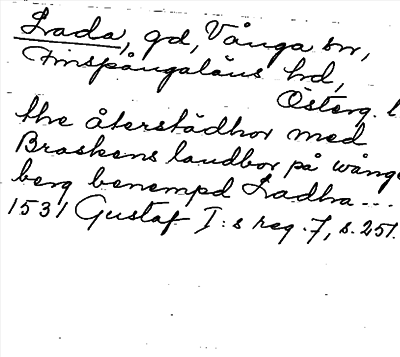 Lada, gd, Vånga sn,
Finspångaläns hd,
Österg. l
the återstädhor med
Braskens landbor på wånge
berg benempd Ladha ---
1531 Gustaf I:s reg. 7, s. 251.